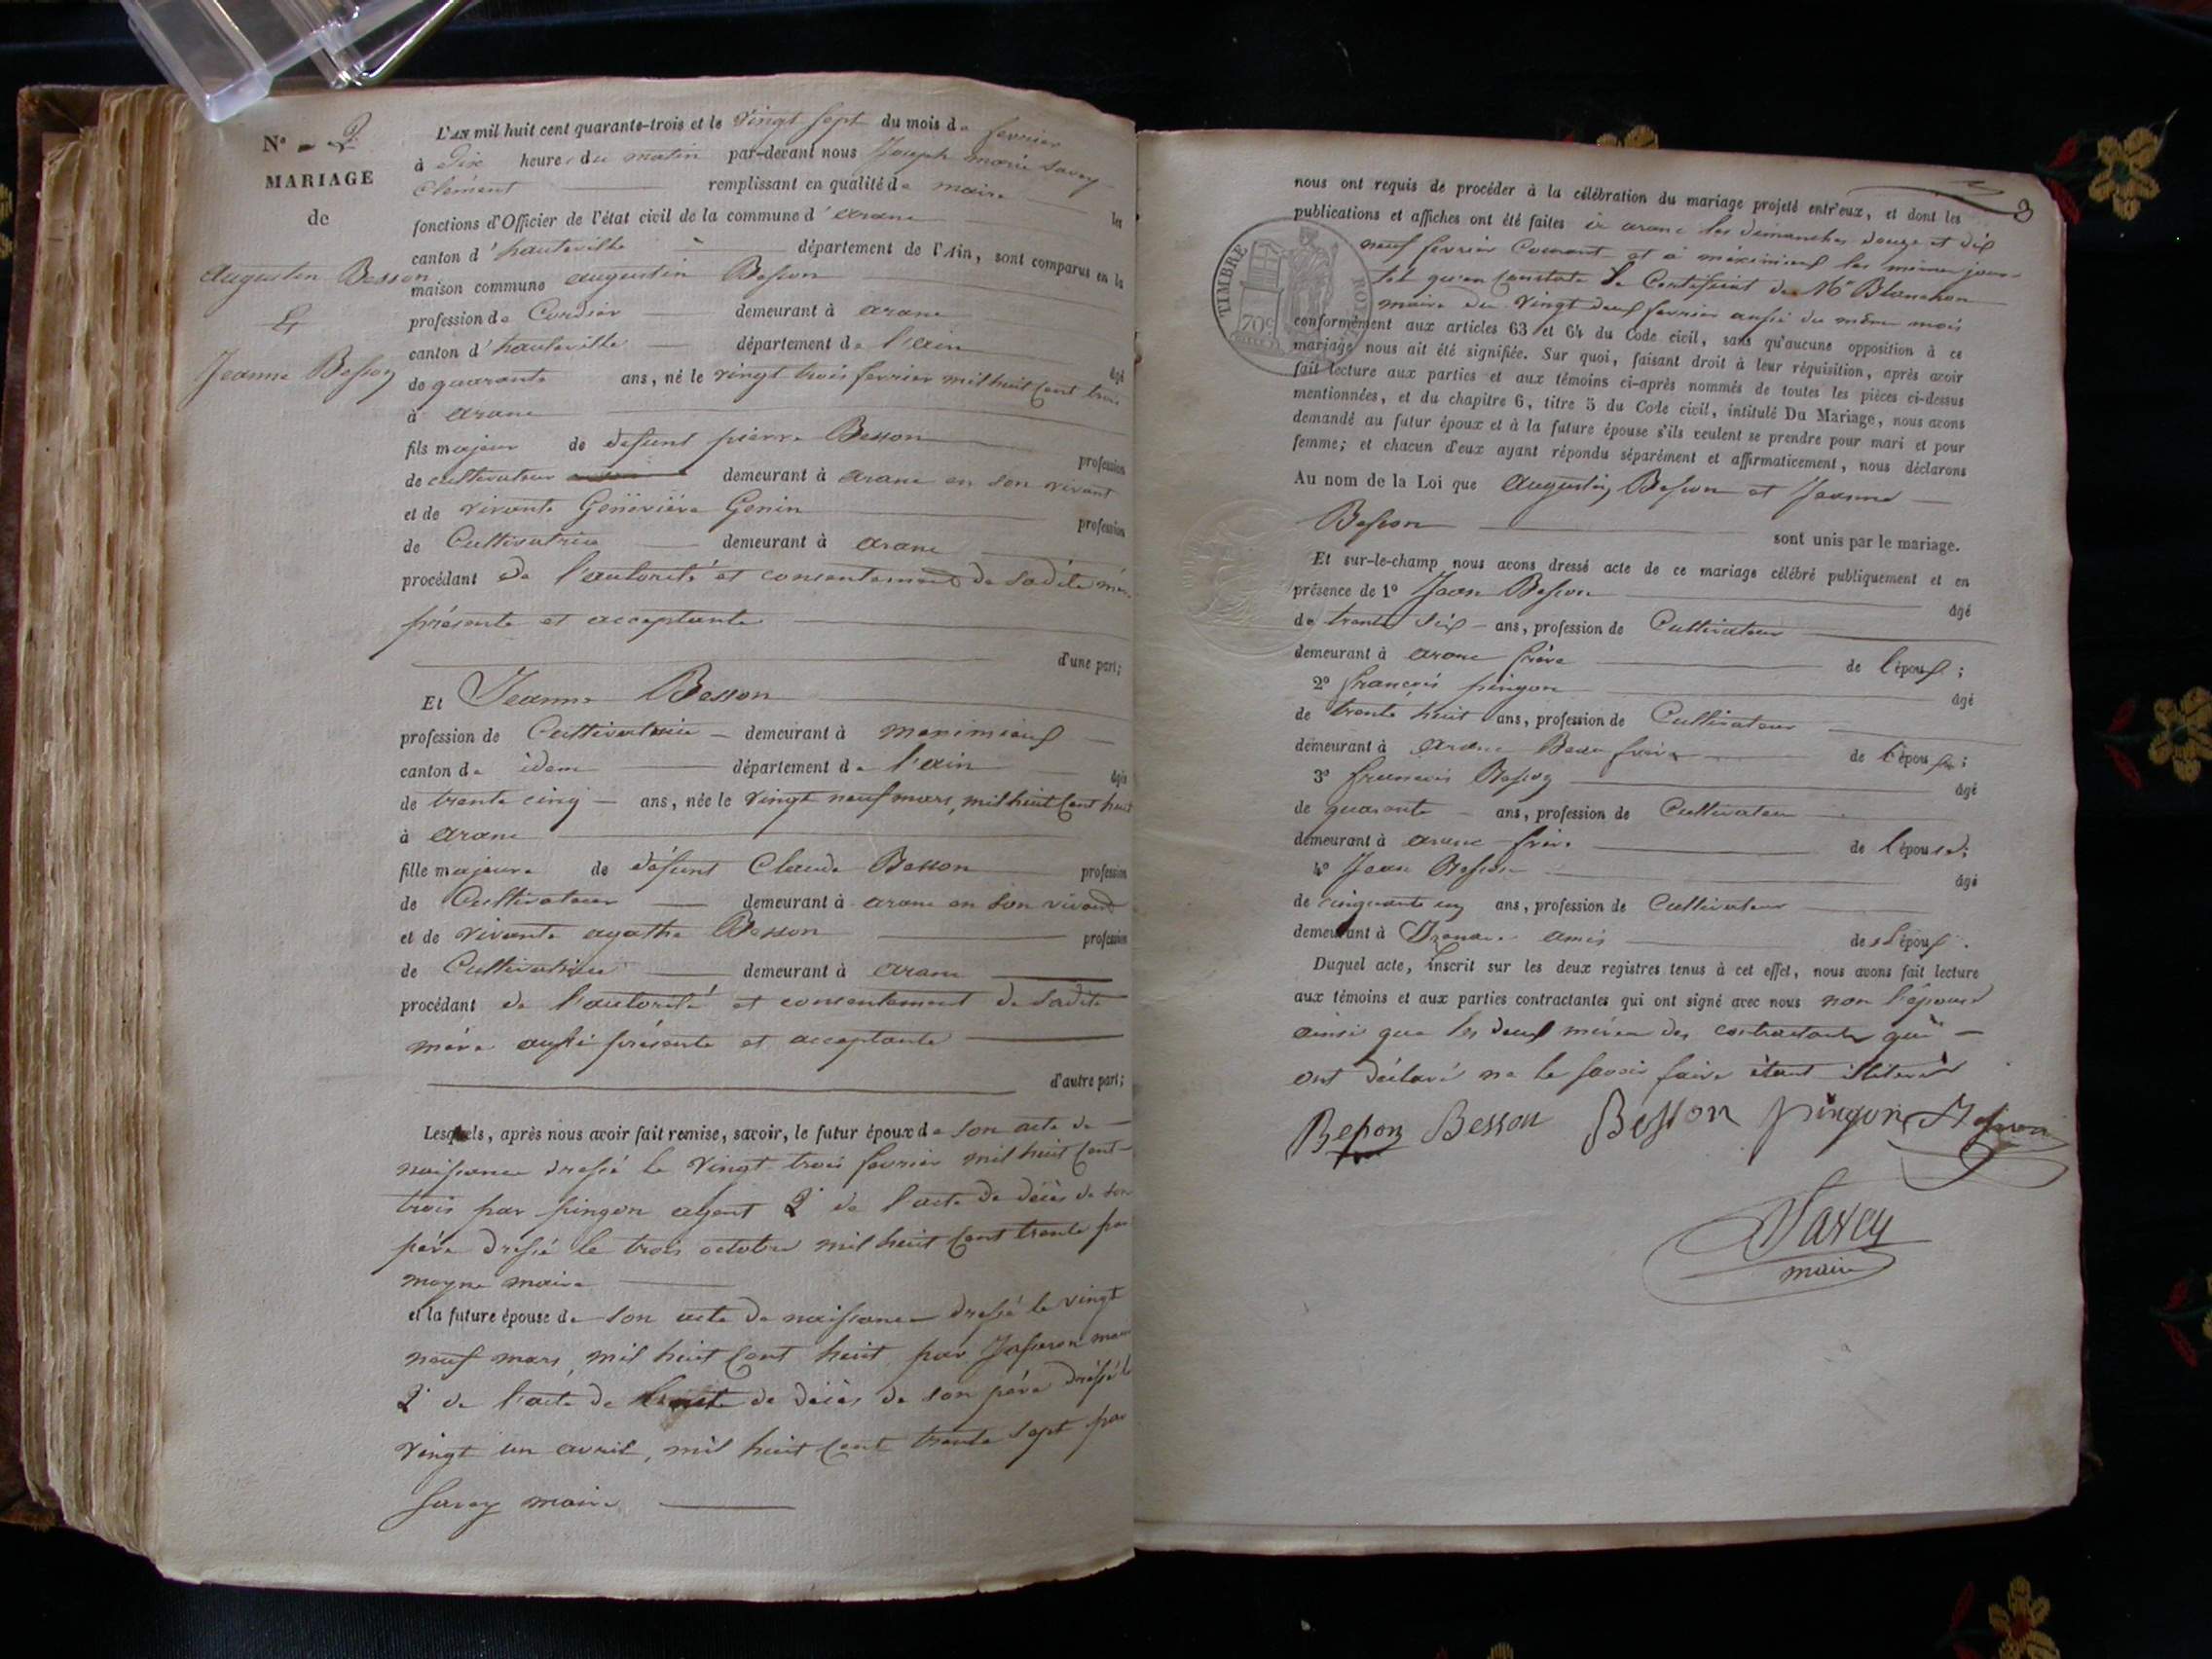 N° 2
MARIAGE
de
Augustin Besson
&
Jeanne Besson
L'AN mil huit cent quarante-trois et le vingt sept du mois de fevrier
à Dix heures du matin par-devant nous Joseph marie Savey
Clément remplissant en qualité de maire les
fonctions d'Officier de l'état civil de la commune d'arane
canton d'hauteville département de l'Ain, sont comparus en la
maison commune augustin Besson
profession de Cordier demeurant à arane
canton d'hauteville département de l'ain âgé
de quarante ans, né le vingt trois fevrier mil huit Cent trois
à arane
fils majeur de defunt pierre Besson profession
de cultivateur demeurant à arane en son vivant
et de vivante Geneviève Genin profession
de Cultivatrice demeurant à arane
procédant de l'autorité et consentement de sadite mère
présente et acceptante
d'une part;
Et Jeanne Besson
profession de Cultivatrice demeurant à meximieux
canton de idem département de l'ain âgée
de trente cinq ans, née le vingt neuf mars, mil huit Cent huit
à arane
fille majeure de défunt Claude Besson profession
de Cultivateur demeurant à arane en son vivant
et de vivante agathe Besson profession
de Cultivatrice demeurant à arane
procédant de l'autorité et consentement de sadite
mère aussi présente et acceptante
d'autre part;
Lesquels, après nous avoir fait remise, savoir, le futur époux de son acte de
naissance dressé le vingt trois fevrier mil huit Cent
trois par pingon agent 2° de l'acte de décès de son
père dressé le trois octobre mil huit Cent trente par
moyne maire
et la future épouse de son acte de naissance dressé le vingt
neuf mars, mil huit Cent huit par maire
2° de l'acte de de décès de son père dréssé le
vingt un avril, mil huit Cent trente sept par
Savey maire
3
nous ont requis de procéder à la célébration du mariage projeté entr'eux, et dont les
publications et affiches ont été faites à arane les dimanches douze et dix
neuf fevrier Courant et à méximieux les mêmes jours
tel qu'en Constate le Certificat de Mr Blanchon
maire du vingt deux fevrier aussi du même mois
TIMBRE ROYAL
70c
conformément aux articles 63 et 64 du Code civil, sans qu'aucune opposition à ce
mariage nous ait été signifiée. Sur quoi, faisant droit à leur réquisition, après avoir
fait lecture aux parties et aux témoins ci-après nommés de toutes les pièces ci-dessus
mentionnées, et du chapitre 6, titre 5 du Code civil, intitulé Du Mariage, nous avons
demandé au futur époux et à la future épouse s'ils veulent se prendre pour mari et pour
femme; et chacun d'eux ayant répondu séparément et affirmativement, nous déclarons
Au nom de la Loi que Augustin Besson et Jeanne
Besson sont unis par le mariage.
Et sur-le-champ nous avons dressé acte de ce mariage célébré publiquement et en
présence de 1° Jean Besson âgé
de trente six ans, profession de Cultivateur
demeurant à arane frère de l'époux;
2° françois pingon âgé
de trente huit ans, profession de Cultivateur
demeurant à arane Beau frère de l'époux;
3° francois Besson âgé
de quarante ans, profession de Cultivateur
demeurant à arane frère de l'épouse;
4° Jean Besson âgé
de cinquante cinq ans, profession de Cultivateur
demeurant à amis de l'époux.
Duquel acte, inscrit sur les deux registres tenus à cet effet, nous avons fait lecture
aux témoins et aux parties contractantes qui ont signé avec nous non l'épouse
ainsi que les deux mères des contractants qui
ont déclaré ne le savoir faire étant illitérés
Besson Besson Besson pingon Besson
Savey
maire